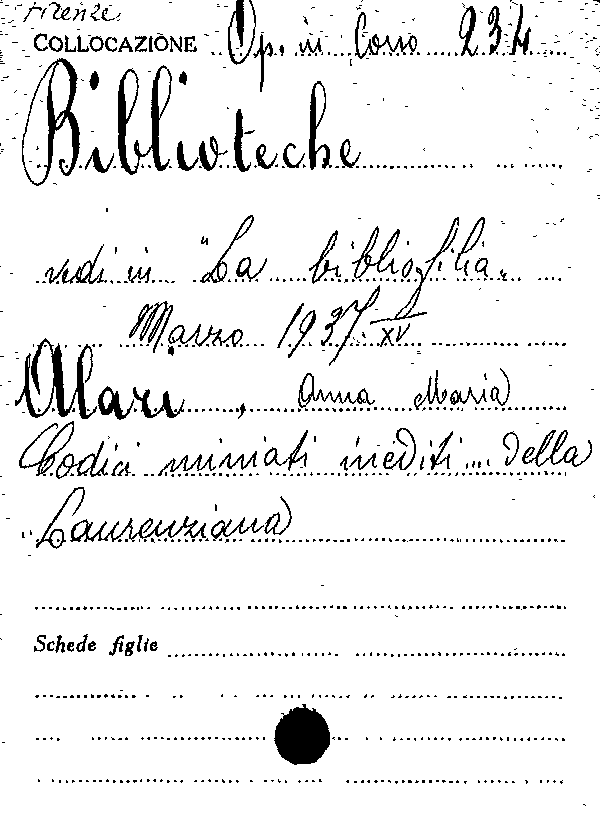 Firenze.
COLLOCAZIONE Op. in Corso 234
Biblioteche
vedi in "La bibliofilia"
Marzo 1937. XV
Alari, Anna Maria
Codici miniati inediti della
Laurenziana
Schede figlie